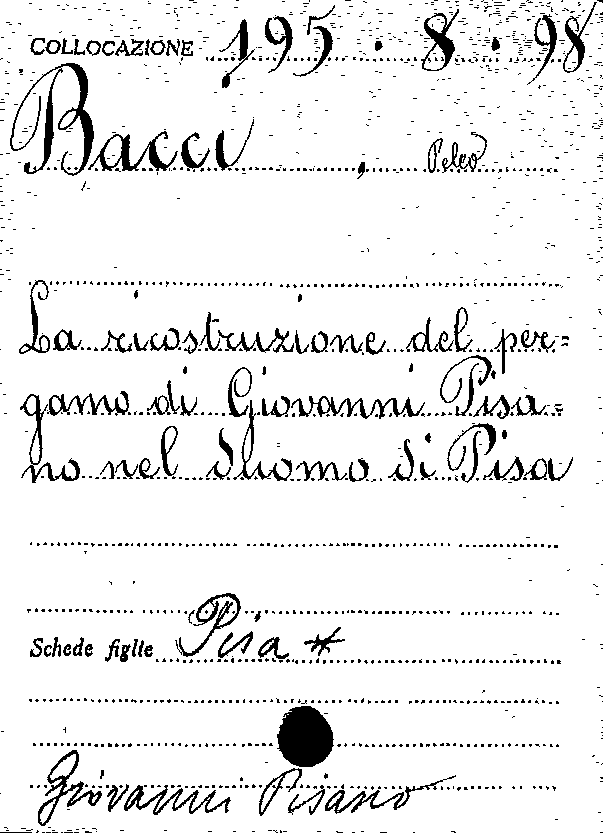 COLLOCAZIONE 195 . 8 . 98
Bacci, Peleo
La ricostruzione del per=
gamo di Giovanni Pisa=
no nel duomo di Pisa
Schede figlie Pisa *
Giovanni Pisano